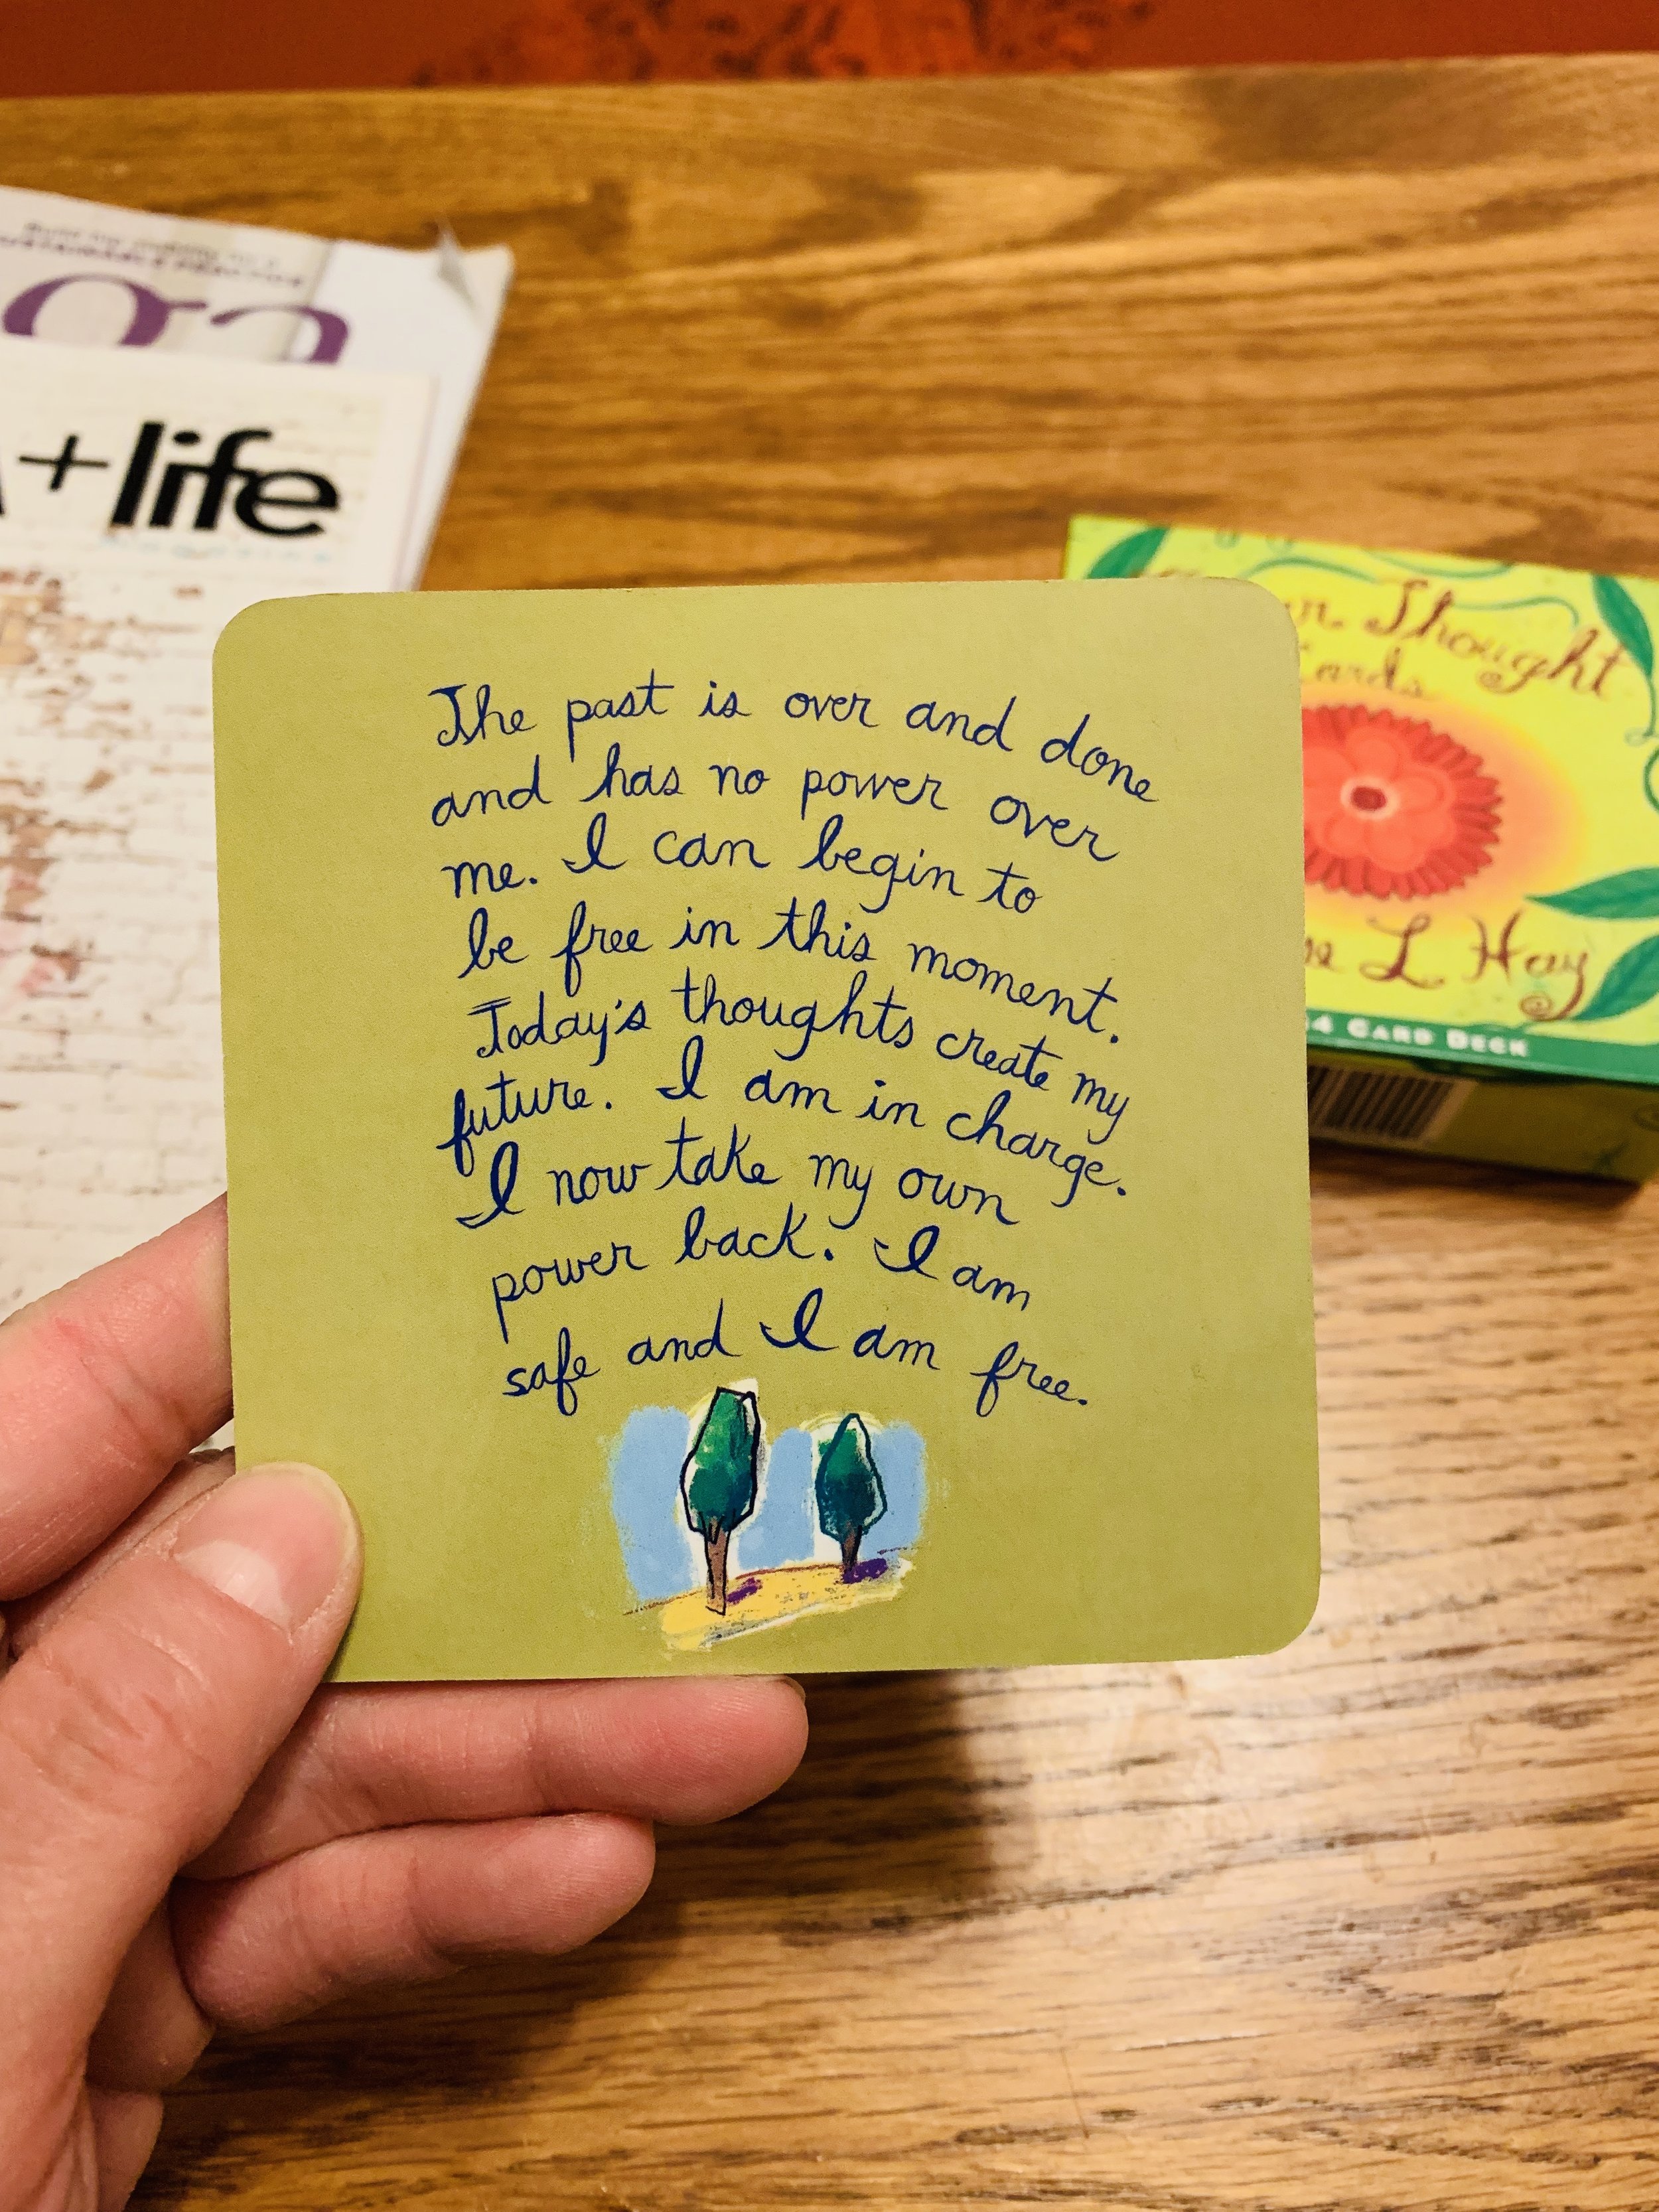 +life
Thought
L Hay
CARD DECK
The past is over and done
and has no power over
me. I can begin to
be free in this moment.
Today's thoughts create my
future. I am in charge.
I now take my own
power back. I am
safe and I am free.